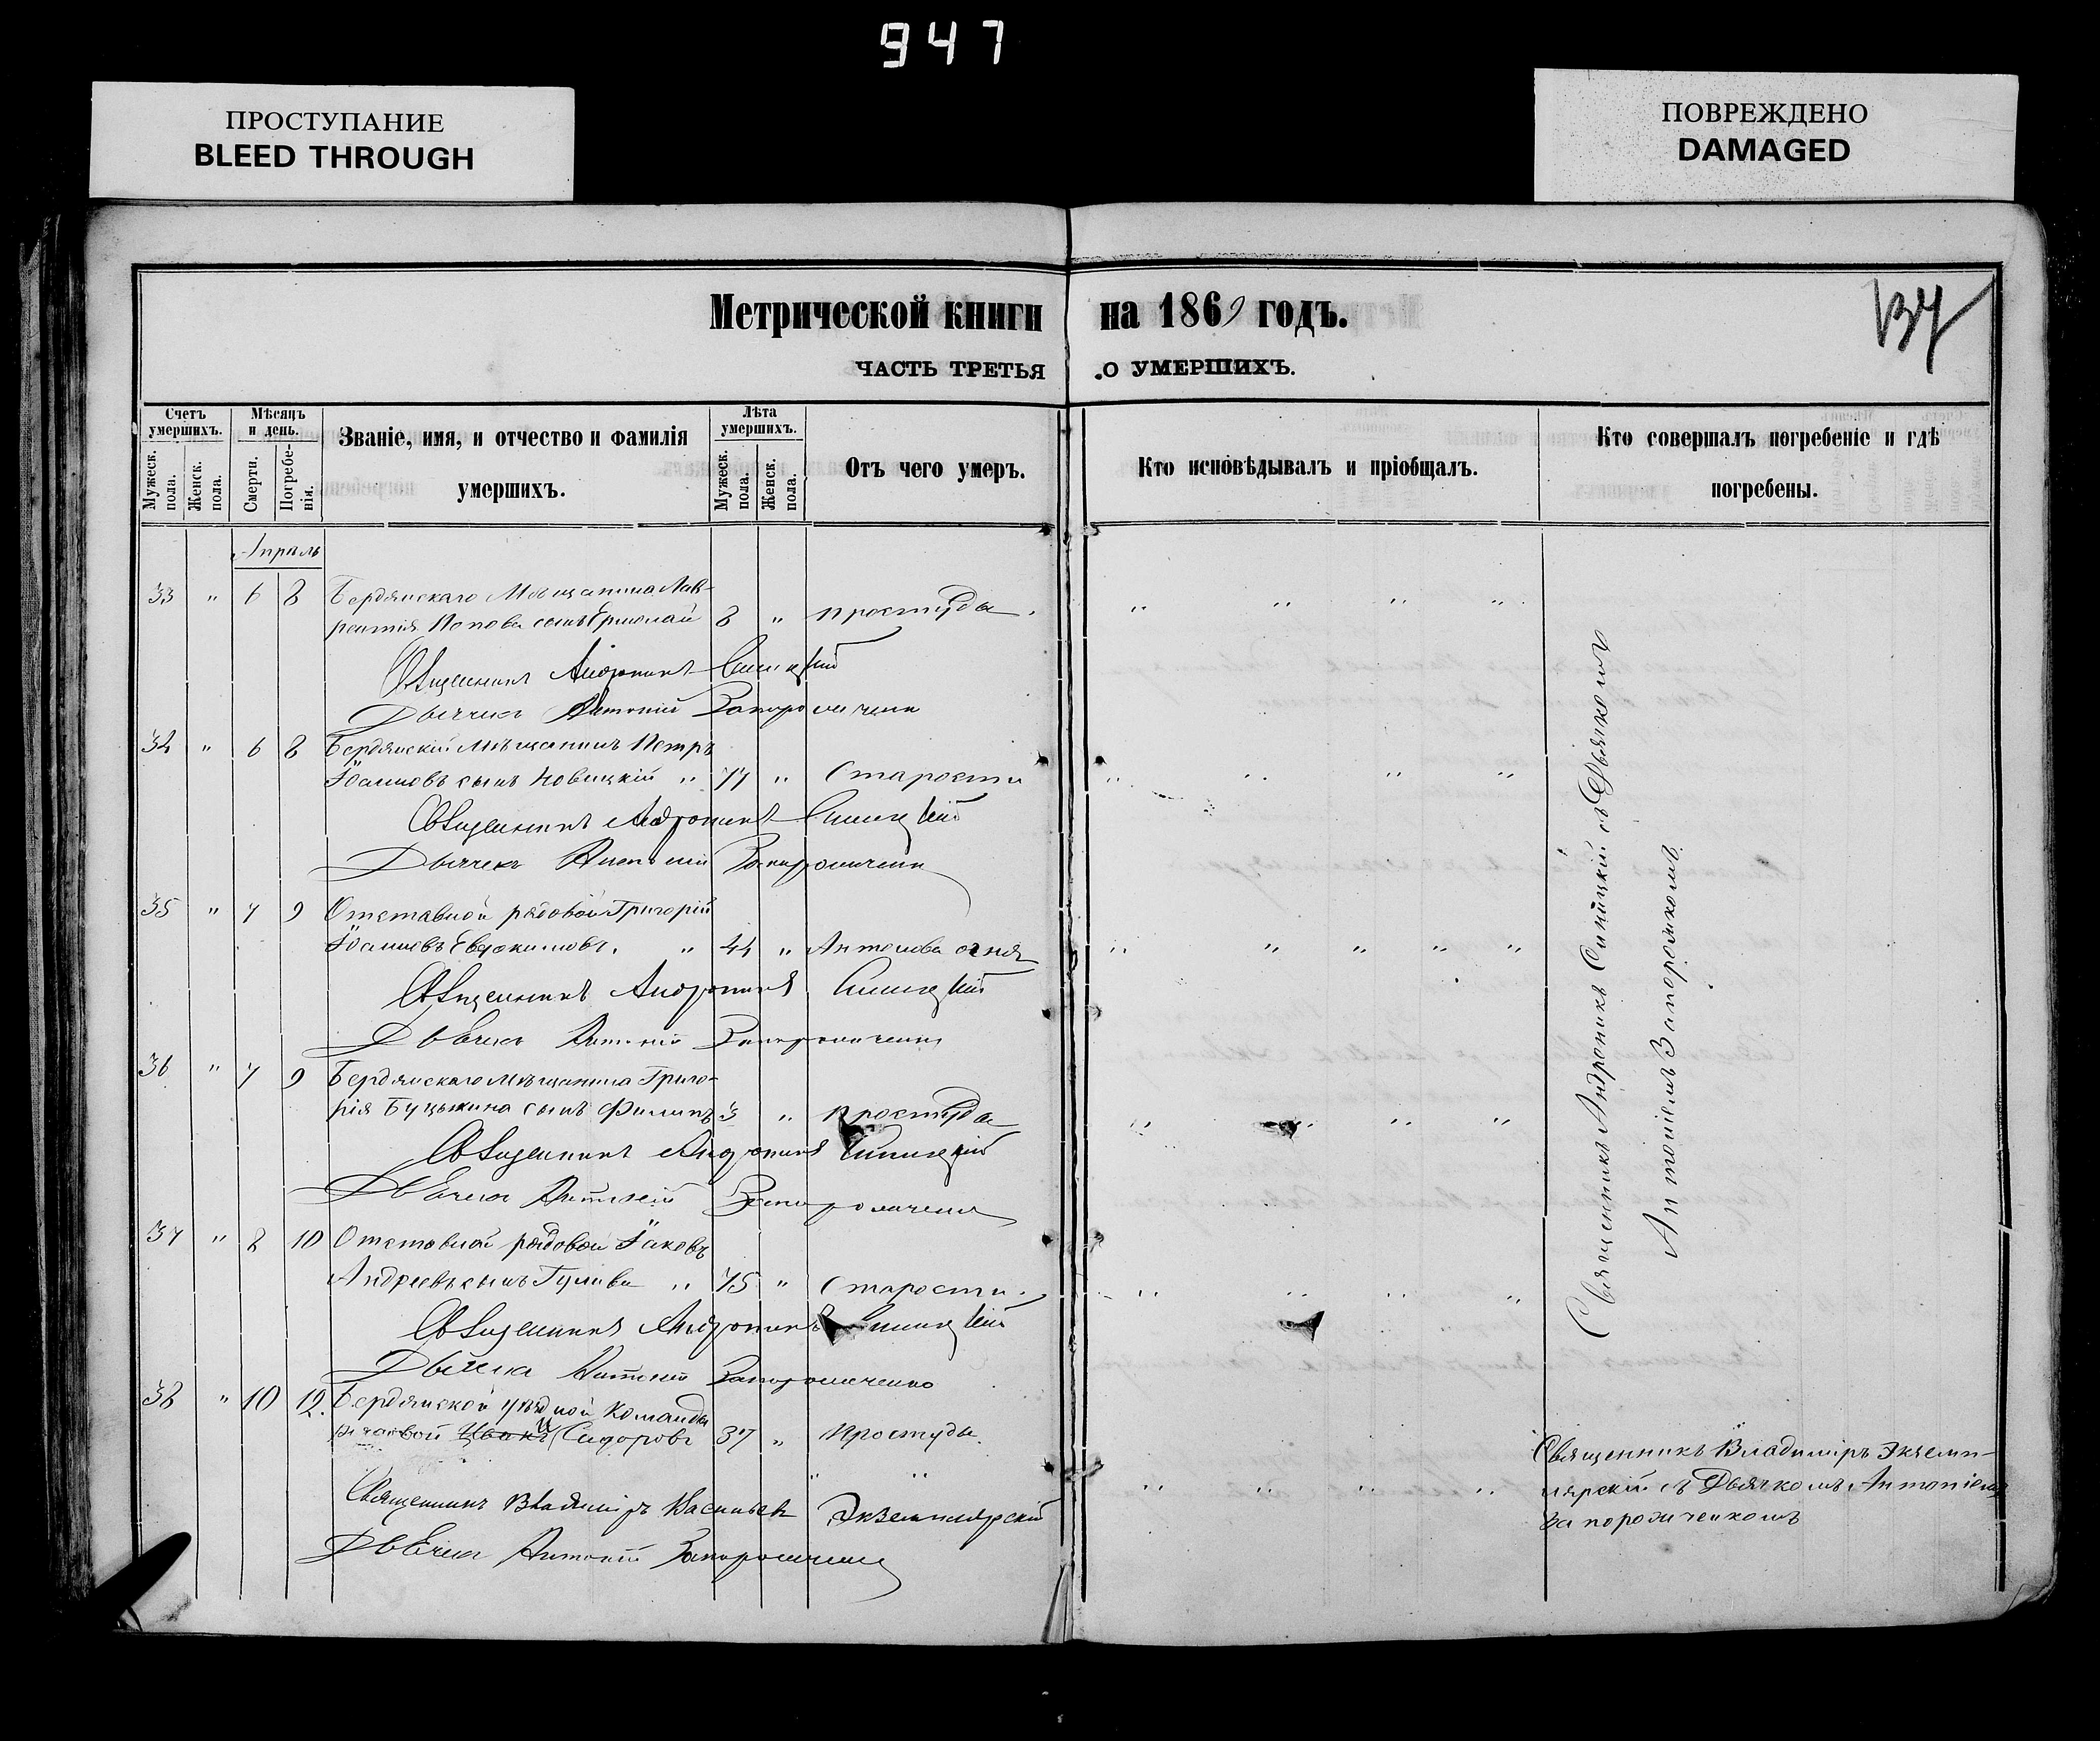 947
ПРОСТУПАНИЕ
BLEED THROUGH
ПОВРЕЖДЕНО
DAMAGED
Метрической книги на 1869 годъ.
137
ЧАСТЬ ТРЕТЬЯ .О УМЕРШИХЪ.
Счетъ умершихъ.
Мужеск. пола.
Женск. пола.
Мѣсяцъ и день.
Смерти.
Погребе-
нія.
Званіе, имя, и отчество и фамилія
умершихъ.
Лѣта умершихъ.
Мужеск. пола.
Женск. пола.
Отъ чего умеръ.
Кто исповѣдывалъ и пріобщалъ.
Кто совершалъ погребеніе и гдѣ
погребены.
Апрель
33 " 6 8 Бердянскаго Мѣщанина Лав-
рентія Попова сынъ Ермолай 8 " простуда. " " " "
Священникъ Андроникъ Синицкій
Дьячекъ Антоній Запорожченко
34 " 6 8 Бердянскій Мѣщанинъ Петръ
Іоанновъ сынъ Новицкій " 77 " Старости " " " "
Священникъ Андроникъ Синицкій
Дьячекъ Антоній Запорожченко
35 " 7 9 Отставной рядовой Григорій
Іоанновъ Евдокимовъ. " 44 " Антонова огня " " " " "
Священникъ Андроникъ Синицкій
Дьячекъ Антоній Запорожченко
36 " 7 9 Бердянскаго Мѣщанина Григо-
рія сынъ Филипъ 3 " простуда " " " "
Священникъ Андроникъ Синицкій
Дьячекъ Антоній Запорожченко
37 " 8 10 Отставной рядовой Іаковъ
Андреевъ сынъ " 75 " Старости. " " " "
Священникъ Андроникъ Синицкій
Дьячекъ Антоній Запорожченко
38 " 10 12. Бердянской уѣздной Команды
рядовой Сидоровъ 37 " простуды.
Священникъ Владиміръ Васильевъ Экземплярскій
Дьячекъ Антоній Запорожченко
Священникъ Андроникъ Синицкій съ Дьячкомъ
Антоніемъ Запорожкомъ.
Священникъ Владиміръ Экземп-
лярскій съ Дьячкомъ Антоніемъ
Запорожченкомъ